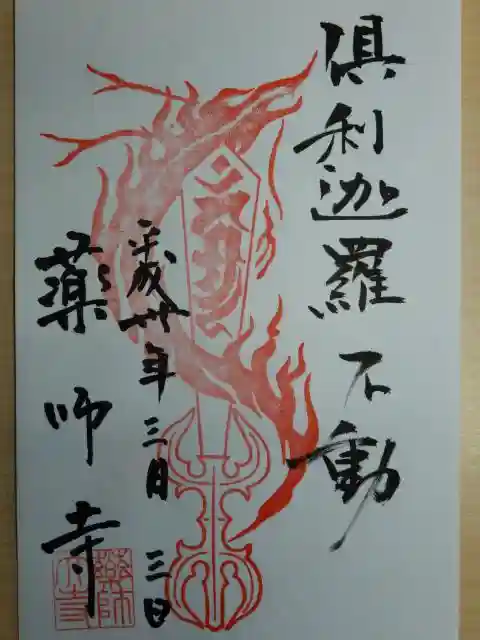 倶利迦羅不動
平成廿年三月三日
薬師寺
薬師寺